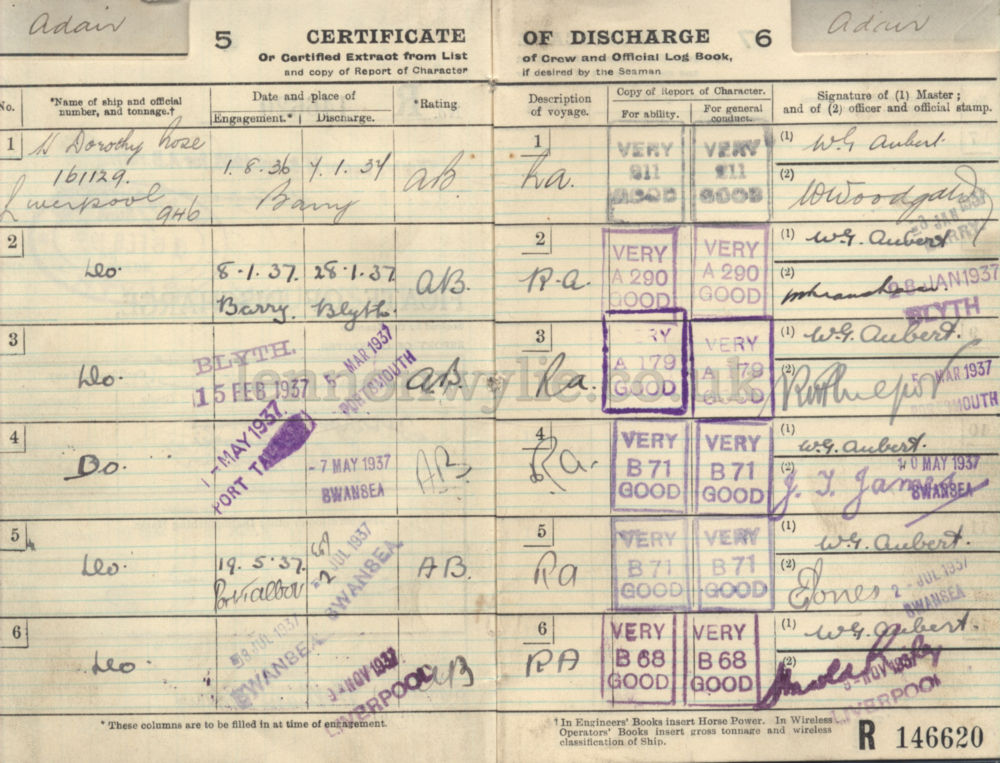 Adair
Adair
5 CERTIFICATE
OF DISCHARGE 6
Or Certified Extract from List
of Crew and Official Log Book,
and copy of Report of Character
if desired by the Seaman
No.
*Name of ship and official
number, and tonnage.†
Date and place of
Engagement.* Discharge.
*Rating.
Description
of voyage.
Copy of Report of Character.
For ability.
For general
conduct.
Signature of (1) Master;
and of (2) officer and official stamp.
1
Dorothy Rose
161129.
Liverpool
946
1.8.36
Barry
AB
1
VERY
911
GOOD
VERY
911
GOOD
(1) W.G. Aubert
(2) W Woodgate
JAN 1937
BARRY
2
8.1.37. 28.1.37
Barry. Blyth.
AB.
2
R.a.
VERY
A 290
GOOD
VERY
A 290
GOOD
(1) W.G. Aubert
(2)
28 JAN 1937
BLYTH
3
BLYTH.
15 FEB 1937
5 MAR 1937
PORTSMOUTH
AB.
3
Ra.
RY
A 79
GOOD
VERY
A 79
GOOD
(1) W.G. Aubert.
(2)
5 MAR 1937
PORTSMOUTH
4
Do.
1-MAY 1937
PORT TALBOT
-7 MAY 1937
SWANSEA
AB
4
Ra.
VERY
B 71
GOOD
VERY
B 71
GOOD
(1) W.G. Aubert.
(2) J. T. James
MAY 1937
SWANSEA
5
19.5.37.
Port Talbot
2 JUL 1937
SWANSEA
AB.
5
Ra
VERY
B 71
GOOD
VERY
B 71
GOOD
(1) W.G. Aubert.
(2) Jones
2-JUL 1937
SWANSEA
6
JUL 1937
SWANSEA
-NOV 1937
LIVERPOOL
AB
6
RA
VERY
B 68
GOOD
VERY
B 68
GOOD
(1) W.G. Aubert.
(2) Harold
-NOV 1937
LIVERPOOL
* These columns are to be filled in at time of engagement.
† In Engineers' Books insert Horse Power. In Wireless
Operators' Books insert gross tonnage and wireless
classification of Ship.
R 146620